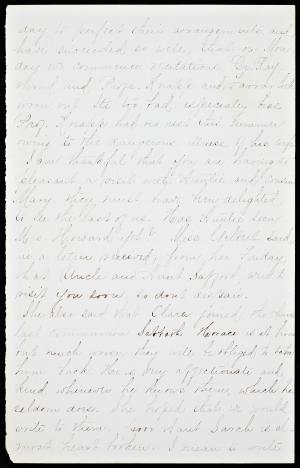 day to perfect their arrangements and
have succeeded so well, that on Mon
day we commence recitations. Dr. Ray
mond and Profs. Knapp and Farrar look
worn out. Its too bad, especially has
Prof. Knapp had no rest this summer
owing to the dangerous illness of his wife.
I am thankful that you are having so
pleasant a visit with Auntie and Cousin
Mary, they must have been delighted
to see the last of us. Has Auntie seen
Mrs. Howard yet? Miss said
in a letter received from her today,
that Uncle and Aunt Safford, will
visit you soon, so don't said.
She also said that Clara joined the
last communion Sabbath. Horace is at home
but much worse, they will be obliged to take
him back. He is very affectionate and
kind, whenever he knows them, which he
seldom does. She hoped that we would
write to them. Poor Aunt Sarah is al-
most heart broken. I mean to write